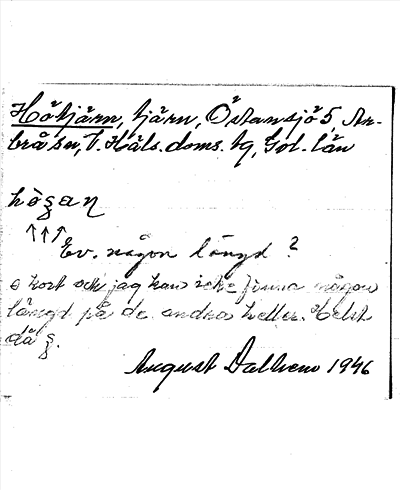 Hötjärn, tjärn, Östansjö 5, Ar-
brå sn, V. Häls. doms. hg, Gvl. län
hö̀ʂan
↑↑↑
Ev. någon längd?
o kort och jag kan icke finna någon
längd på de andra heller. Helst
då ʂ.
August Dalhem 1946